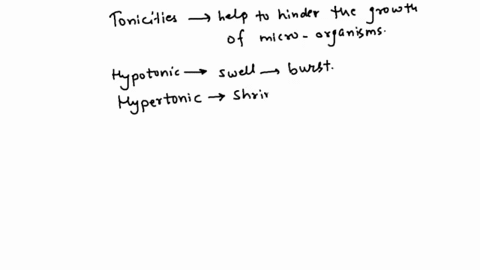 Tonicities → help to hinder the growth
of micro-organisms.
Hypotonic → swell → burst.
Hypertonic → Shrir